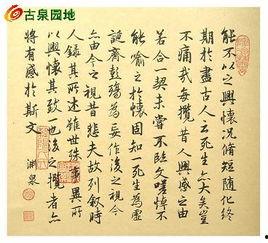 古泉园地
能不以之興懷況脩短隨化終
期於盡古人云死生亦大矣豈
不痛哉每攬昔人興感之由
若合一契未嘗不臨文嗟悼不
能喻之於懷固知一死生為虛
誕齊彭殤為妄作後之視今
亦由今之視昔悲夫故列敘時
人錄其所述雖世殊事異所
以興懷其致一也後之攬者亦
將有感於斯文 淵泉